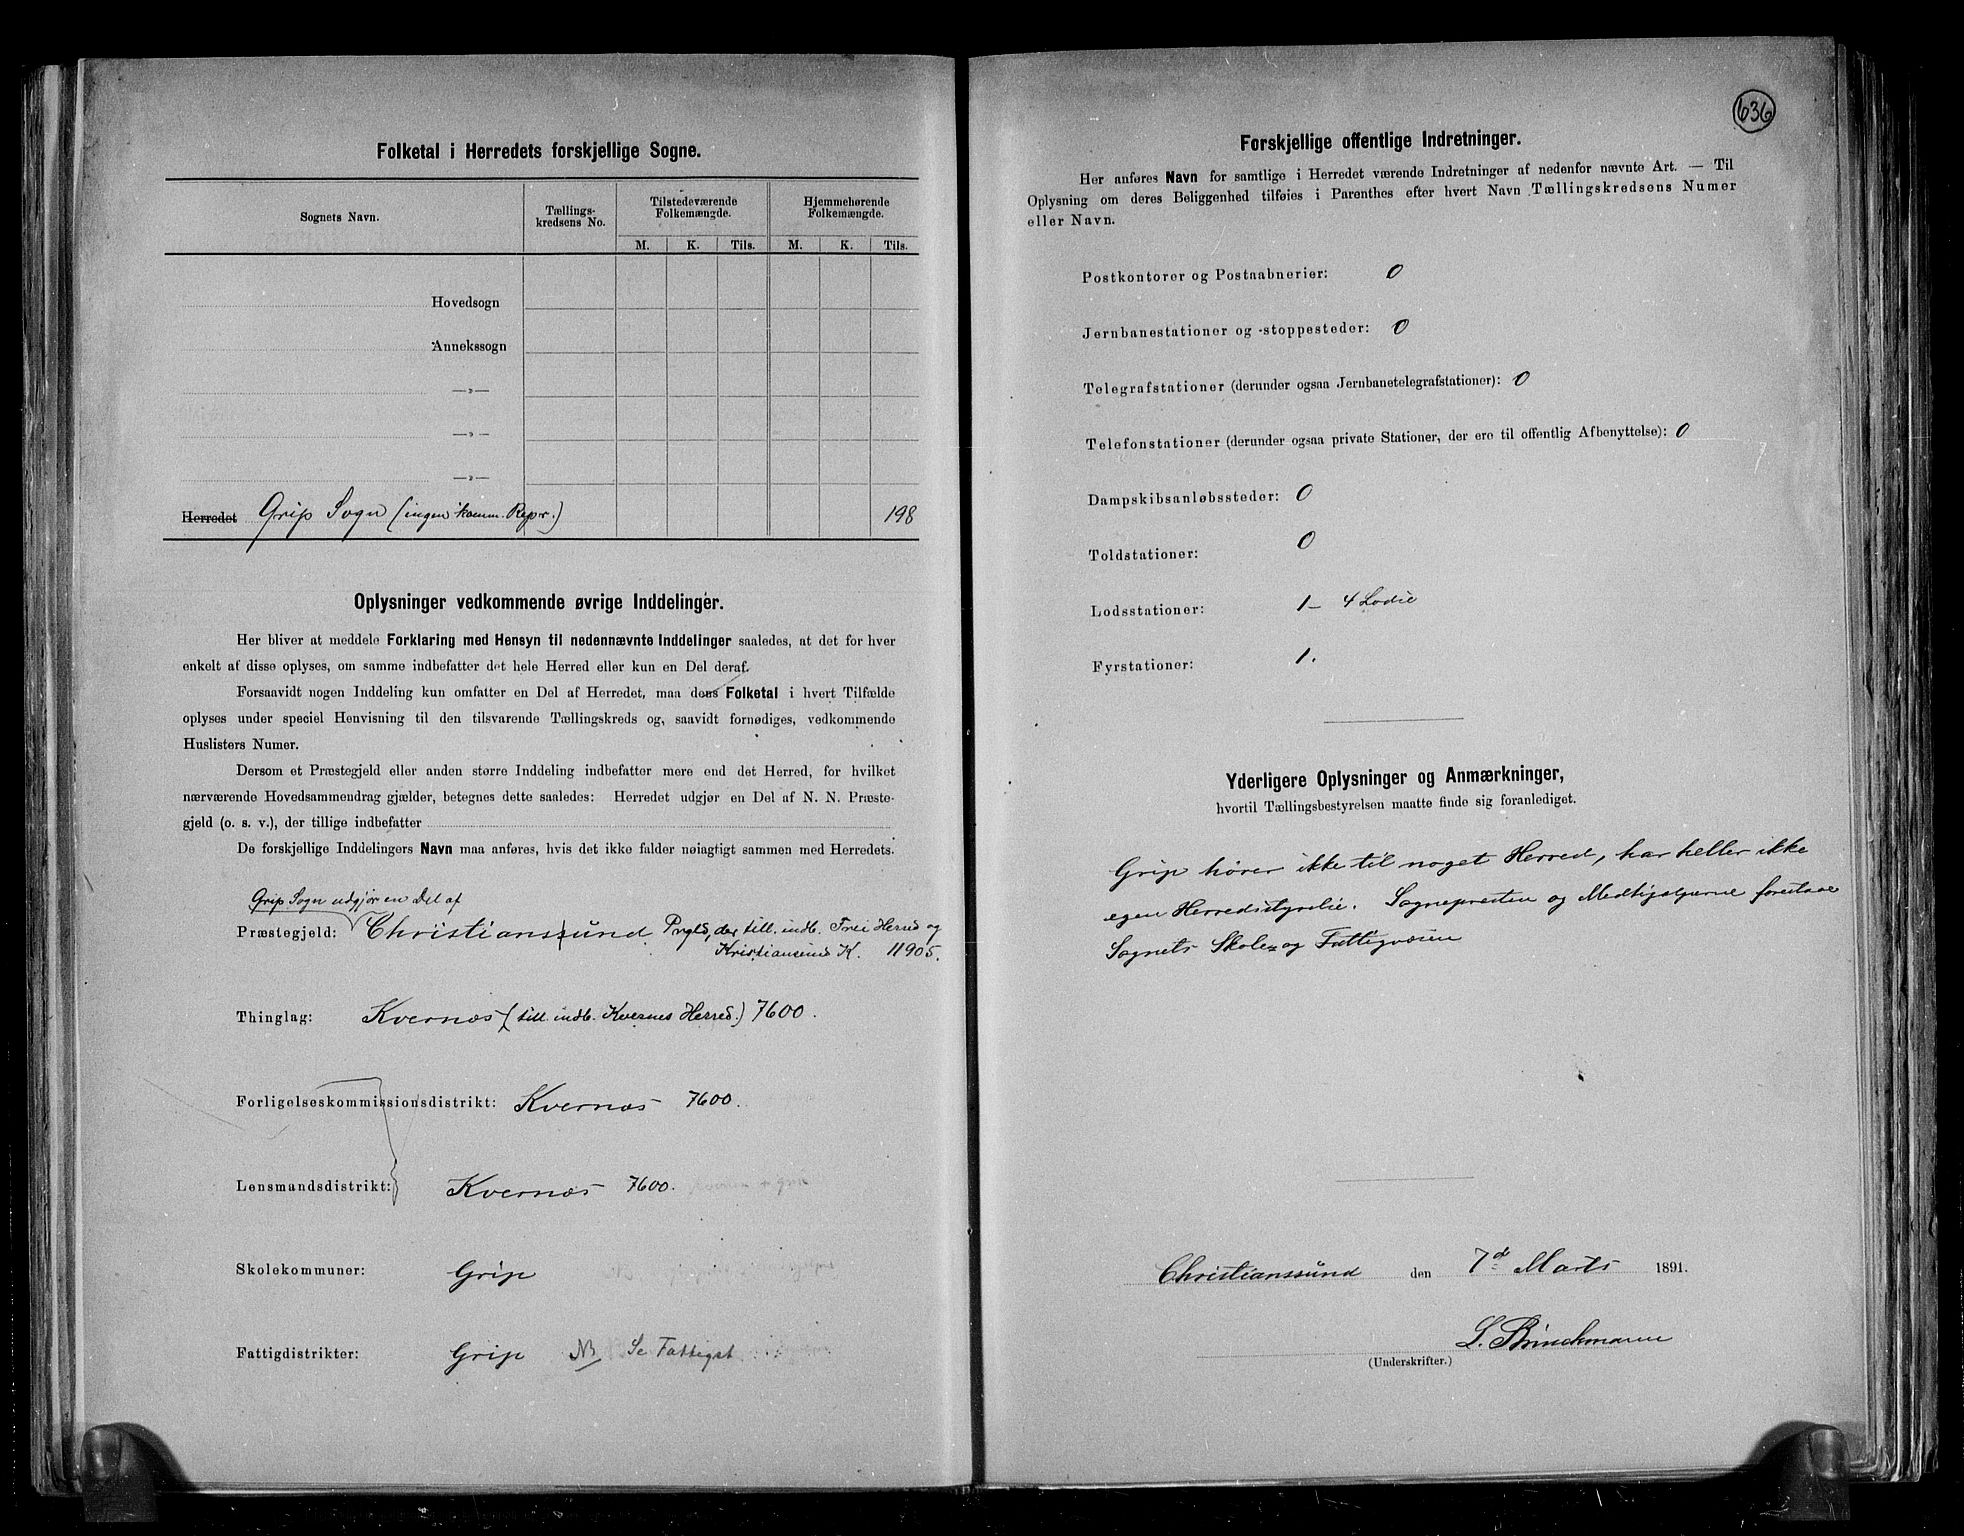 Folketal i Herredets forskjellige Sogne.
Sognets Navn.
Tællings-
kredsens No.
Tilstedeværende
Folkemængde.
Hjemmehørende
Folkemængde.
M. K. Tils. M. K. Tils.
Hovedsogn
Annekssogn
—»—
—»—
—»—
Herredet Grip Sogn (ingen komm. Repr.) 198
Oplysninger vedkommende øvrige Inddelinger.
Her bliver at meddele Forklaring med Hensyn til nedennævnte Inddelinger saaledes, at det for hver
enkelt af disse oplyses, om samme indbefatter det hele Herred eller kun en Del deraf.
Forsaavidt nogen Inddeling kun omfatter en Del af Herredet, maa dens Folketal i hvert Tilfælde
oplyses under speciel Henvisning til den tilsvarende Tællingskreds og, saavidt fornødiges, vedkommende
Huslisters Numer.
Dersom et Præstegjeld eller anden større Inddeling indbefatter mere end det Herred, for hvilket
nærværende Hovedsammendrag gjælder, betegnes dette saaledes: Herredet udgjør en Del af N. N. Præste-
gjeld (o. s. v.), der tillige indbefatter
De forskjellige Inddelingers Navn maa anføres, hvis det ikke falder nøiagtigt sammen med Herredets.
Grip Sogn udgjør en Del af
Præstegjeld: Christianssund Prgld, der till. indb. Frei Herred og
Kristianssund K. 11905.
Thinglag: Kvernes (till. indb. Kvernes Herred.) 7600.
Forligelseskommissionsdistrikt: Kvernes 7600.
Lensmandsdistrikt: Kvernes 7600.
Skolekommuner: Grip
Fattigdistrikter: Grip NB Se Fattigst
636
Forskjellige offentlige Indretninger.
Her anføres Navn for samtlige i Herredet værende Indretninger af nedenfor nævnte Art. — Til
Oplysning om deres Beliggenhed tilføies i Parenthes efter hvert Navn Tællingskredsens Numer
eller Navn.
Postkontorer og Postaabnerier: 0
Jernbanestationer og -stoppesteder: 0
Telegrafstationer (derunder ogsaa Jernbanetelegrafstationer): 0
Telefonstationer (derunder ogsaa private Stationer, der ere til offentlig Afbenyttelse): 0
Dampskibsanløbssteder: 0
Toldstationer: 0
Lodsstationer: 1 – 4 Lodse
Fyrstationer: 1.
Yderligere Oplysninger og Anmærkninger,
hvortil Tællingsbestyrelsen maatte finde sig foranlediget.
Grip hører ikke til noget Herred, har heller ikke
egen Herredsstyrelse. Sognepresten og Medhjælperne forestaae
Sognets Skole- og Fattigvæsen
Christianssund den 7d Marts 1891.
L. Brinchmann
(Underskrifter.)